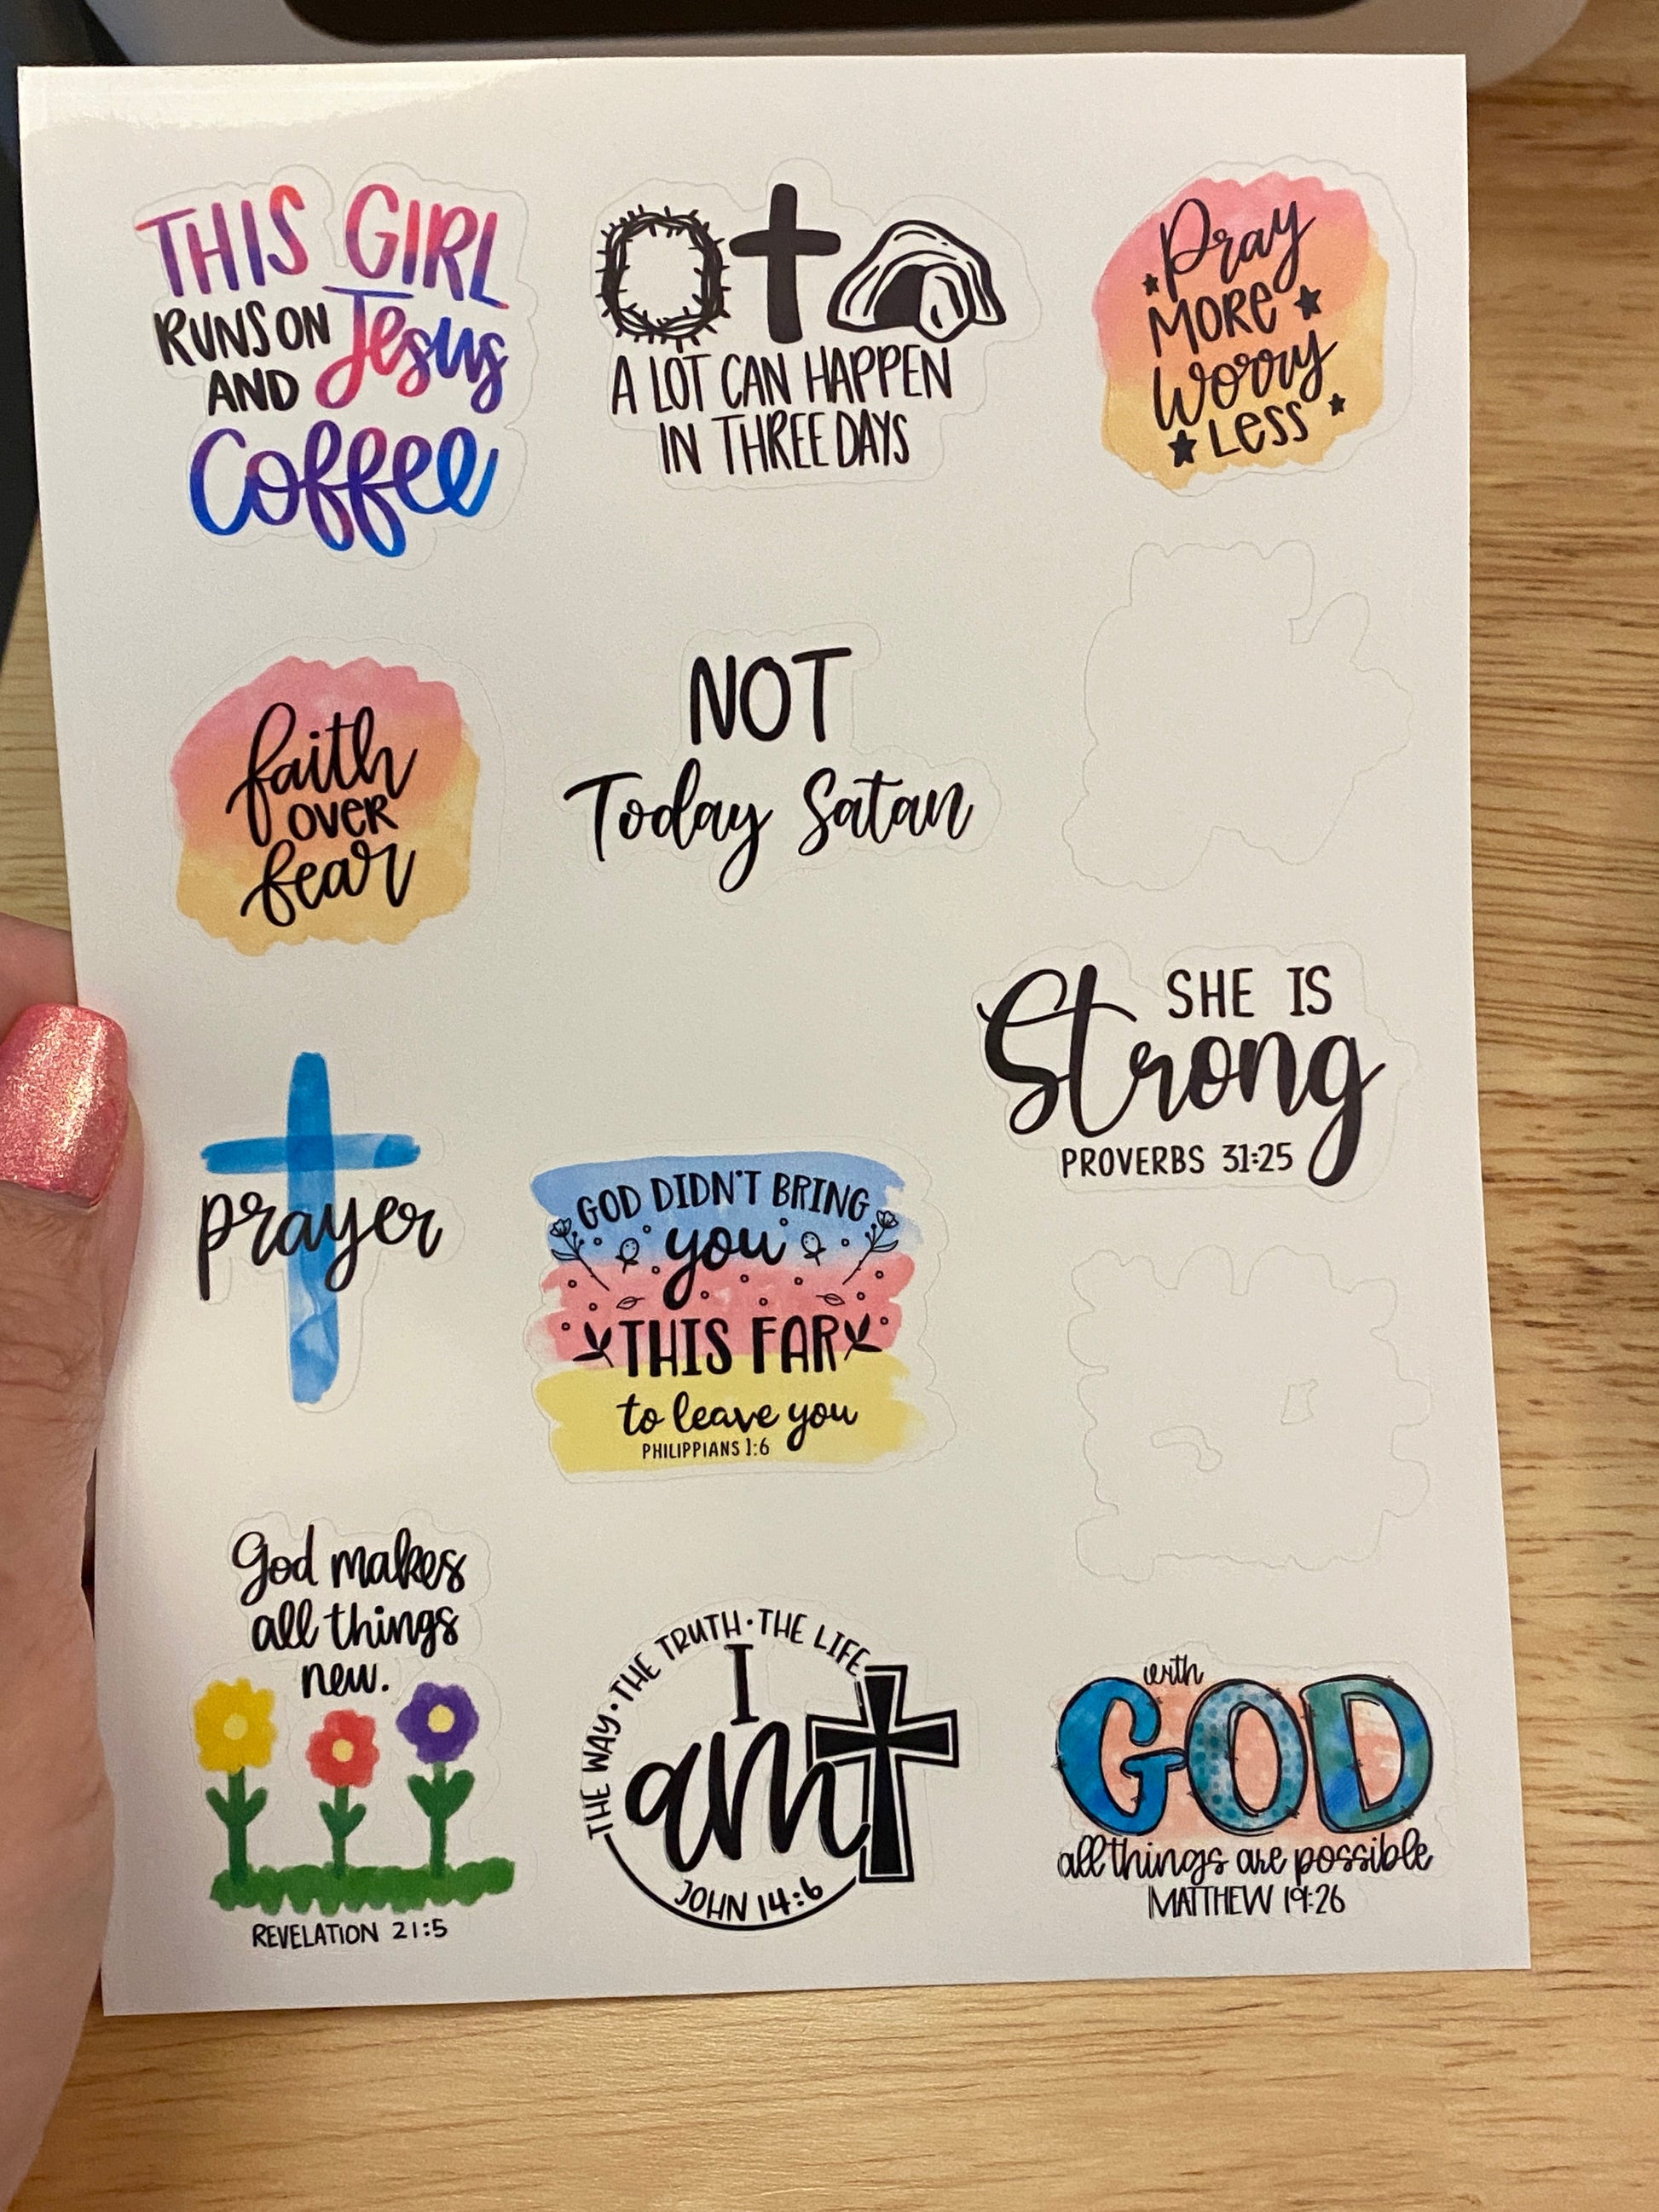 THIS GIRL
RUNS ON Jesus
AND
Coffee
A LOT CAN HAPPEN
IN THREE DAYS
Pray
MORE
Worry
LESS
faith
OVER
fear
NOT
Today Satan
SHE IS
Strong
PROVERBS 31:25
prayer
GOD DIDN'T BRING
you
THIS FAR
to leave you
PHILIPPIANS 1:6
God makes
all things
new.
REVELATION 21:5
THE WAY · THE TRUTH · THE LIFE
I
am
JOHN 14:6
with
GOD
all things are possible
MATTHEW 19:26